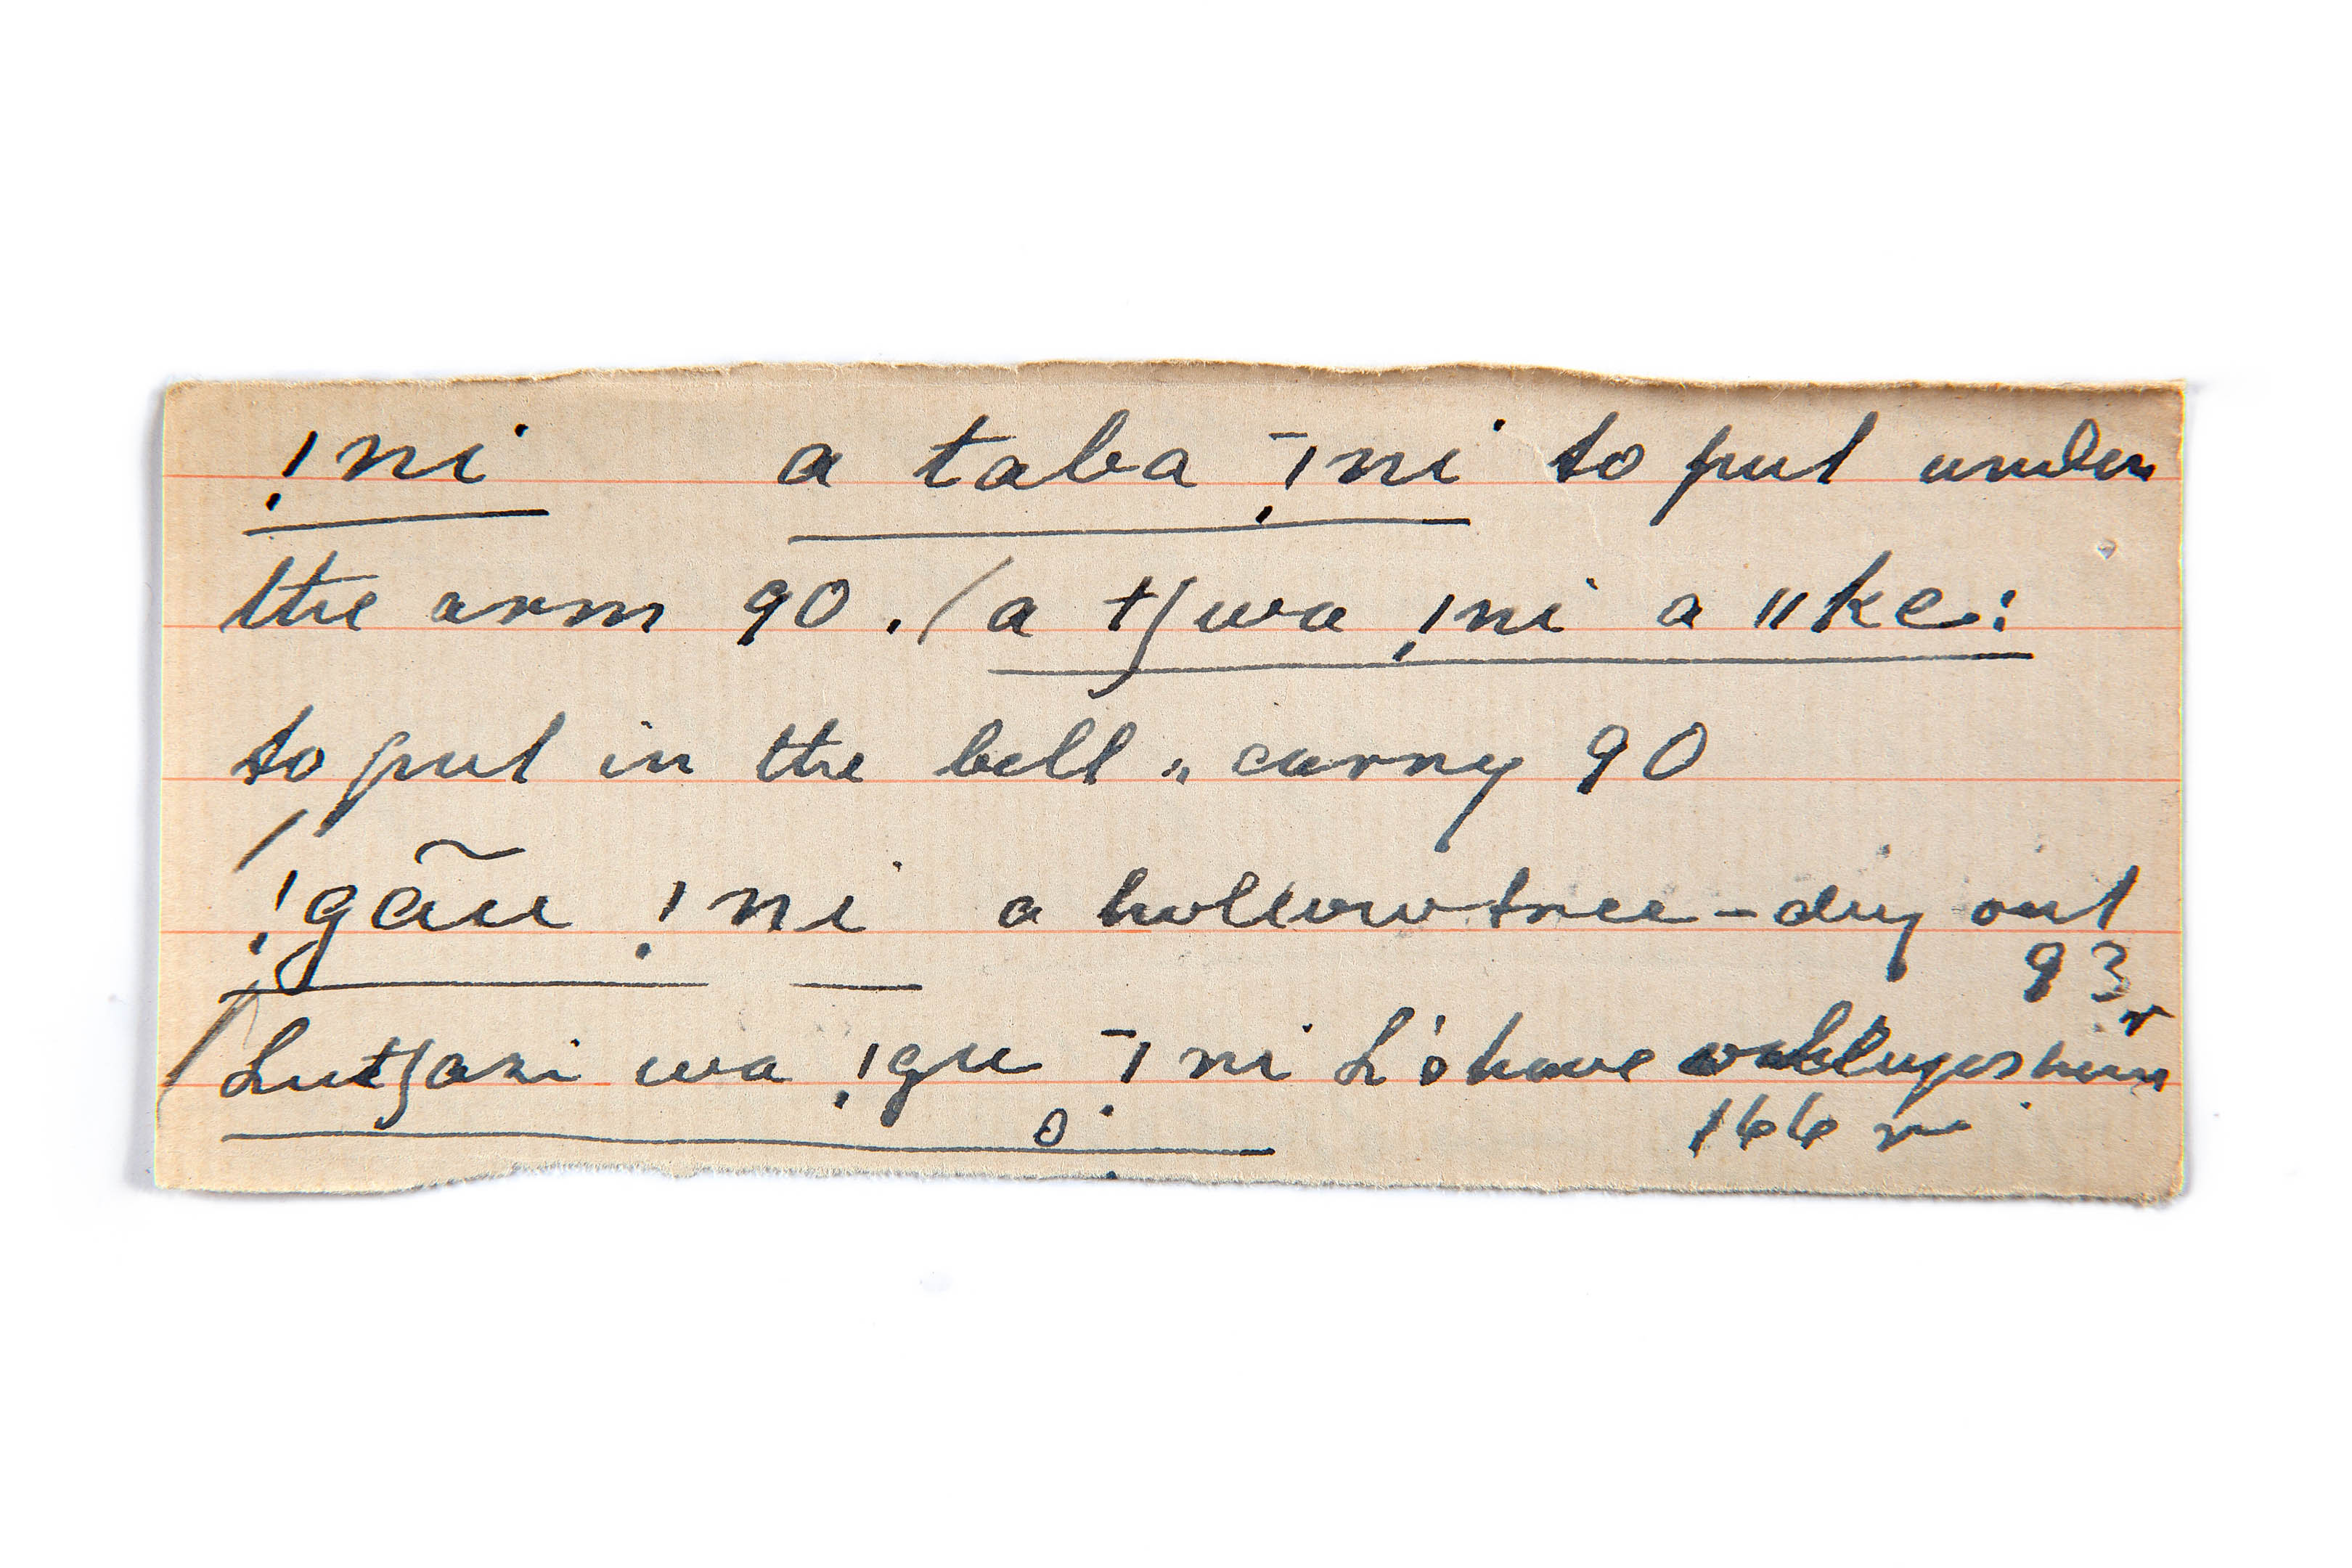 !ni a taba !̄ni to put under
the arm 90. (a tʃwa !ni a ǁke:
to put in the belt, carry 90
!gãu !ni a hollow tree - dry out
93
r
Lutʃasi wa !gu !̄ni L's have
166 r